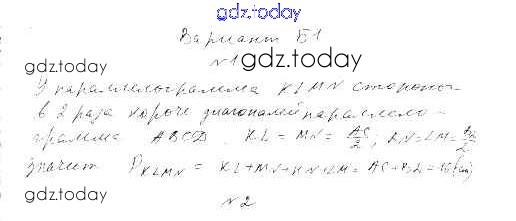 gdz.today
Вариант Б1
№1 gdz.today
gdz.today
У параллелограмма KLMN стороны
в 2 раза короче диагоналей параллело-
грамма ABCD. KL = MN = AC/2; KN = LM = BD/2
gdz.today
значит P_KLMN = KL + MN + KN + LM = AC + BD = 16 (см)
gdz.today
№2